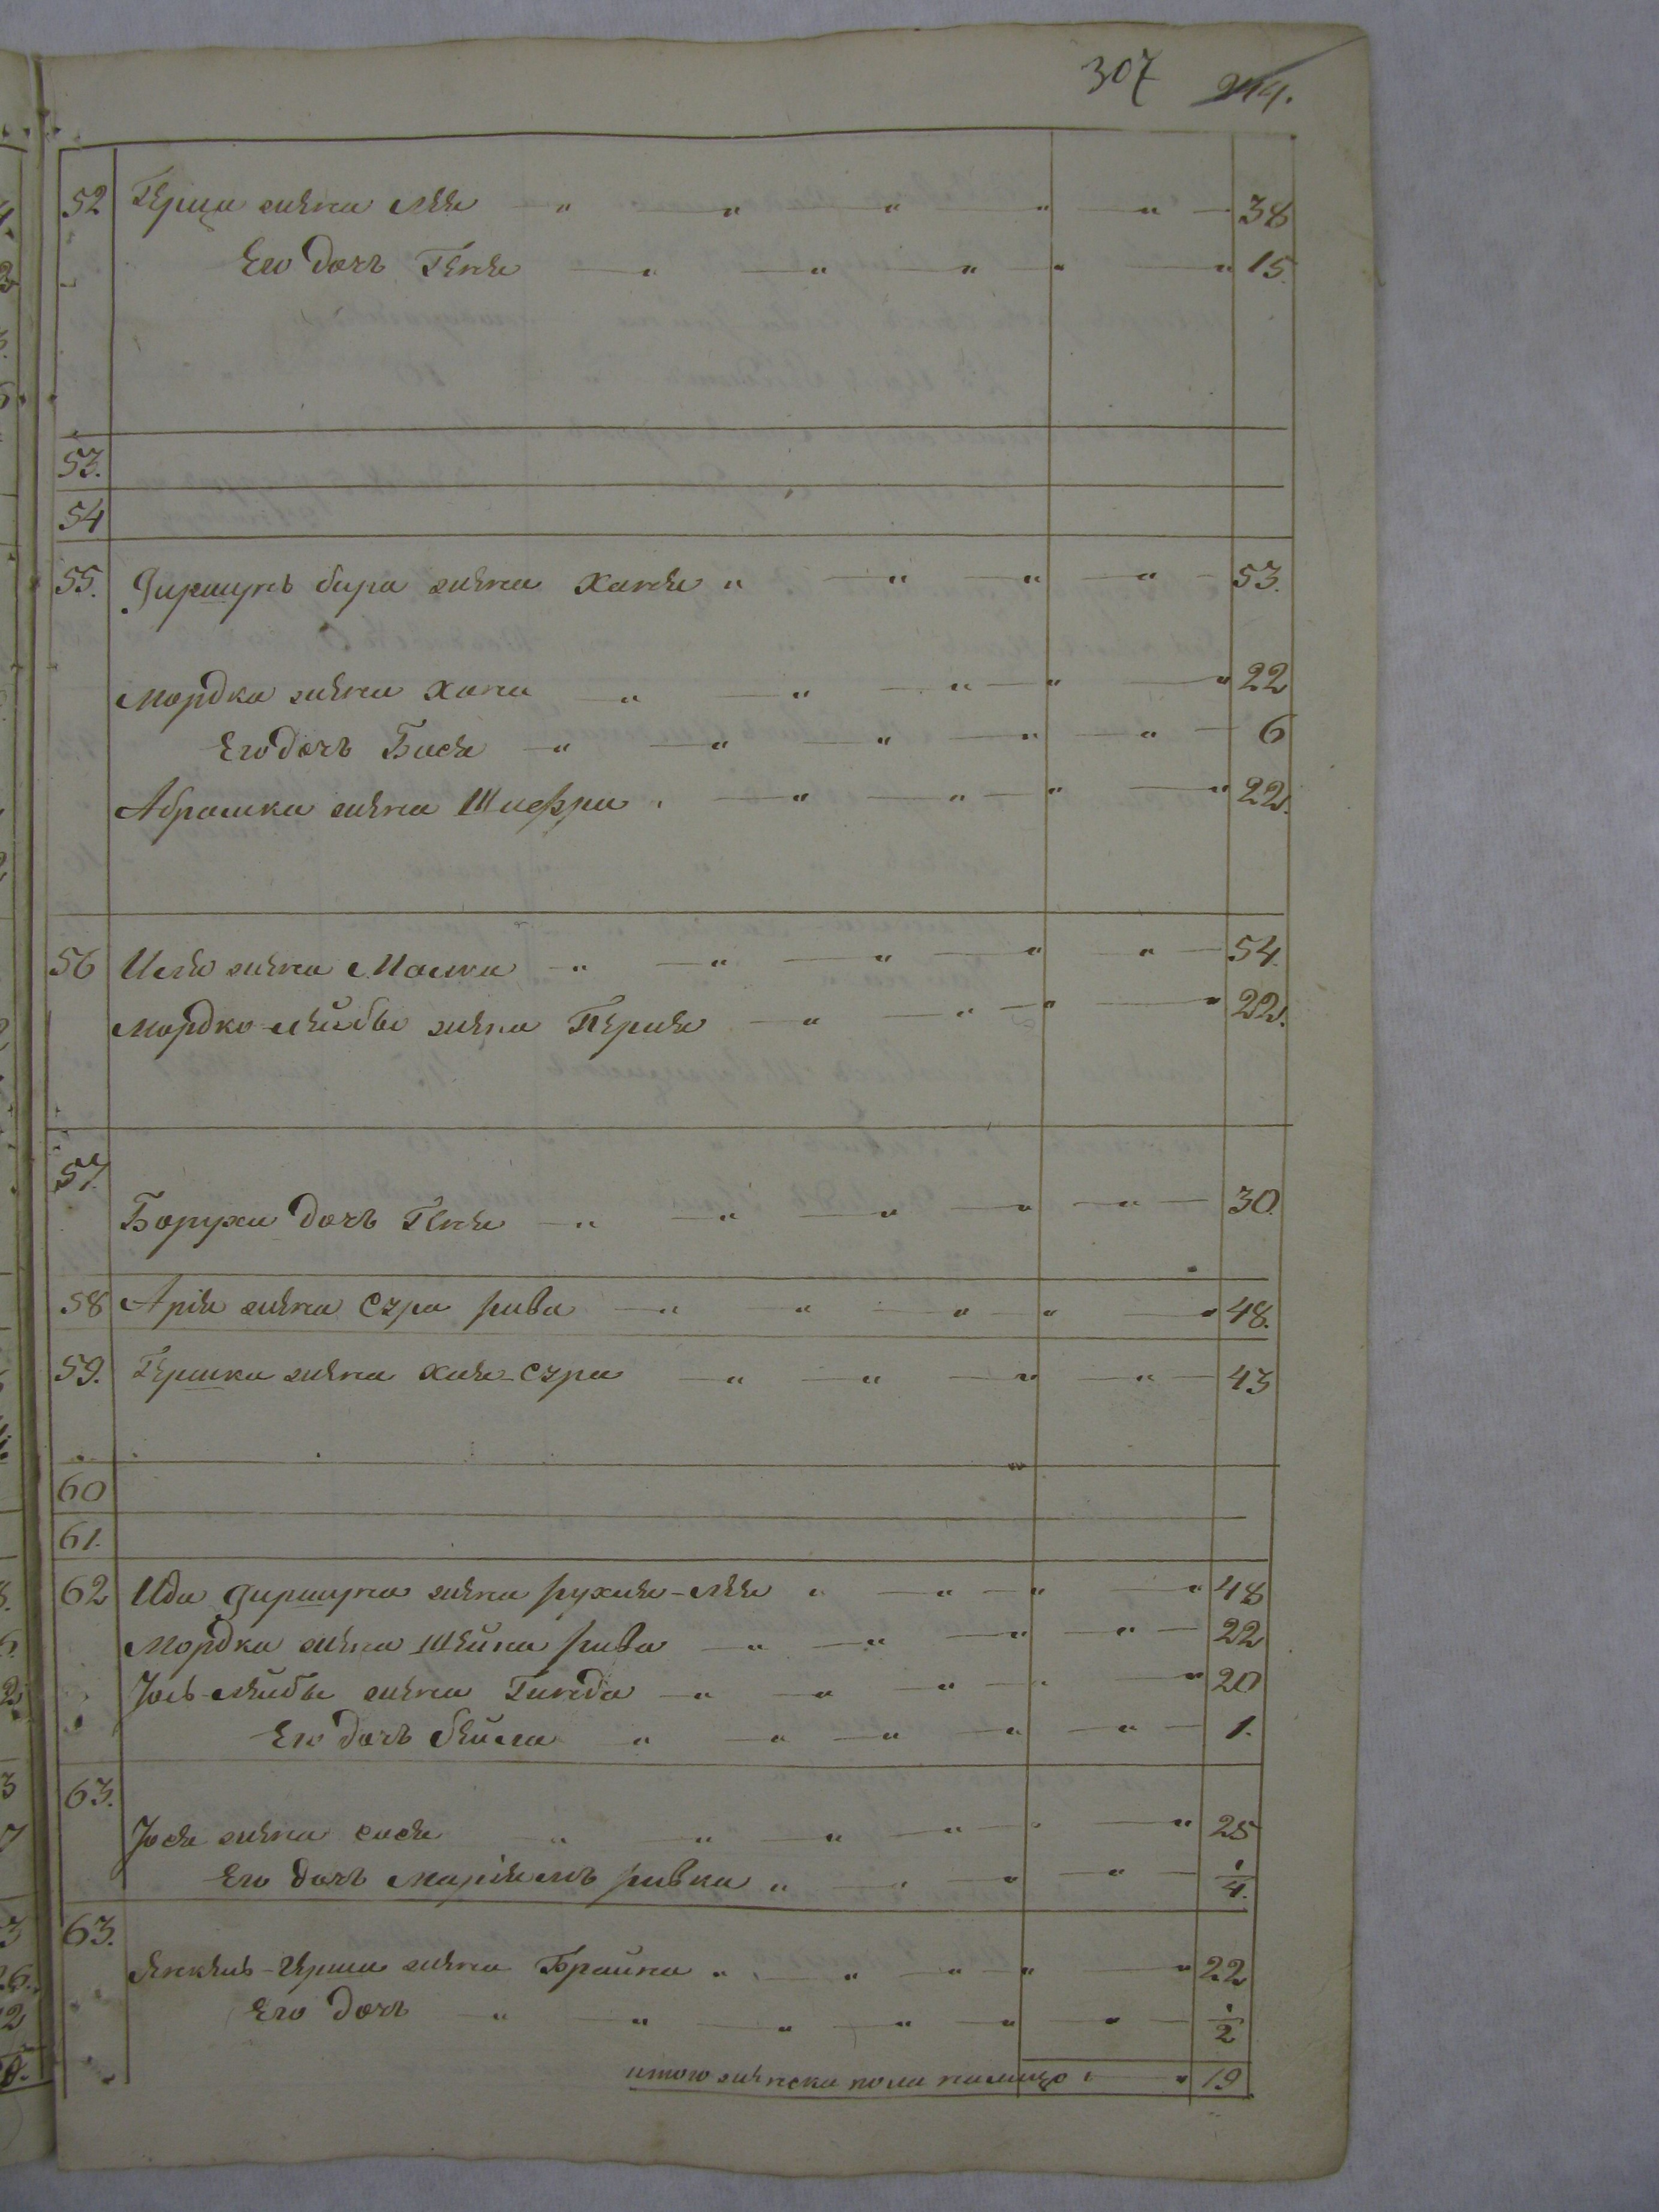 307 244.
52 Герша жена Лея 38
Его дочь Геня 15
53.
54
55. Гиршунъ бера жена Хання 53.
Мордка жена Хана 22
Его дочь Бися 6
Абрамка жена Шифра 22.
56 жена Малка 54.
Мордко-Лейбы жена Перля 22.
57.
Боруха дочь Геня 30.
58 Арія жена Сзра рива 48.
59. Гершка жена Хая-Сзра 43
60
61.
62 Ида гиршуна жена рухля-Лея 48
Мордка жена Шейна рива 22
Іось-Лейбы жена Гинда 20
Его дочь Бейла 1.
63.
Іося жена сося 25
Его дочь ривка 1/4.
63.
Янкель-Герша жена Брайна 22
Его дочь 1/2
итого женска пола налицо 19